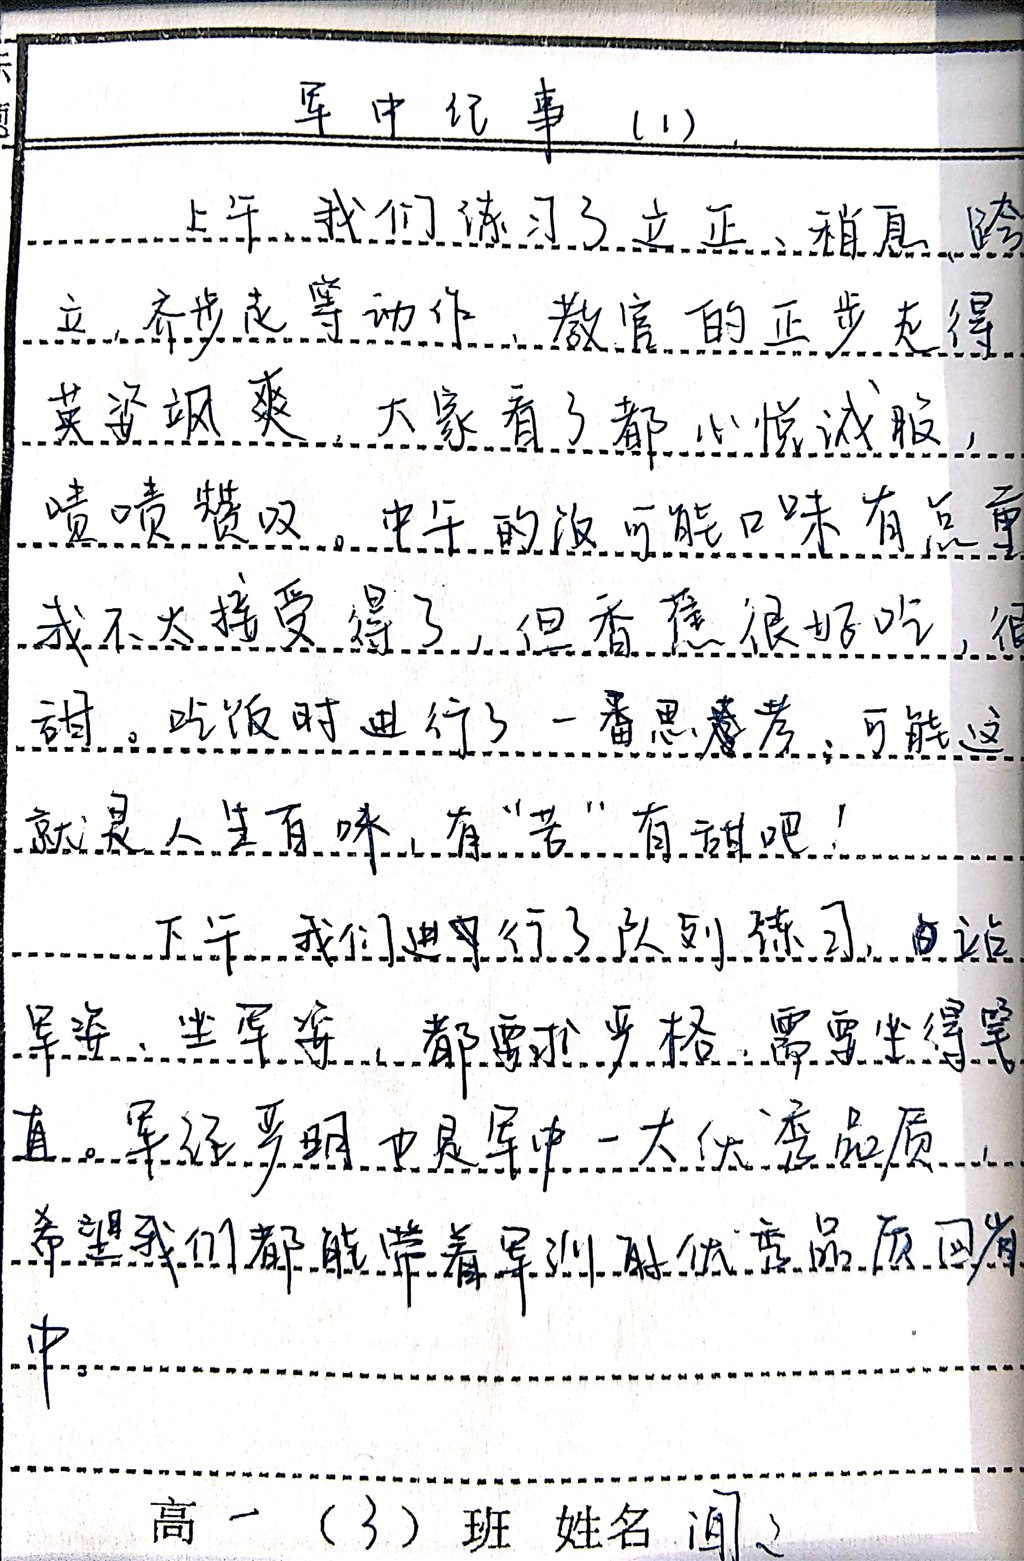 军中纪事（1）
上午，我们练习了立正、稍息、跨
立、齐步走等动作，教官的正步走得
英姿飒爽，大家看了都心悦诚服，
啧啧赞叹。中午的饭可能口味有点重
我不太接受得了，但香蕉很好吃，很
甜。吃饭时进行了一番思考，可能这
就是人生百味，有“苦”有甜吧！
下午，我们进行了队列练习，站
军姿、坐军姿，都要求严格，需要坐得笔
直。军纪严明也是军中一大优秀品质，
希望我们都能带着军训时优秀品质回省
中。
高一（3）班 姓名